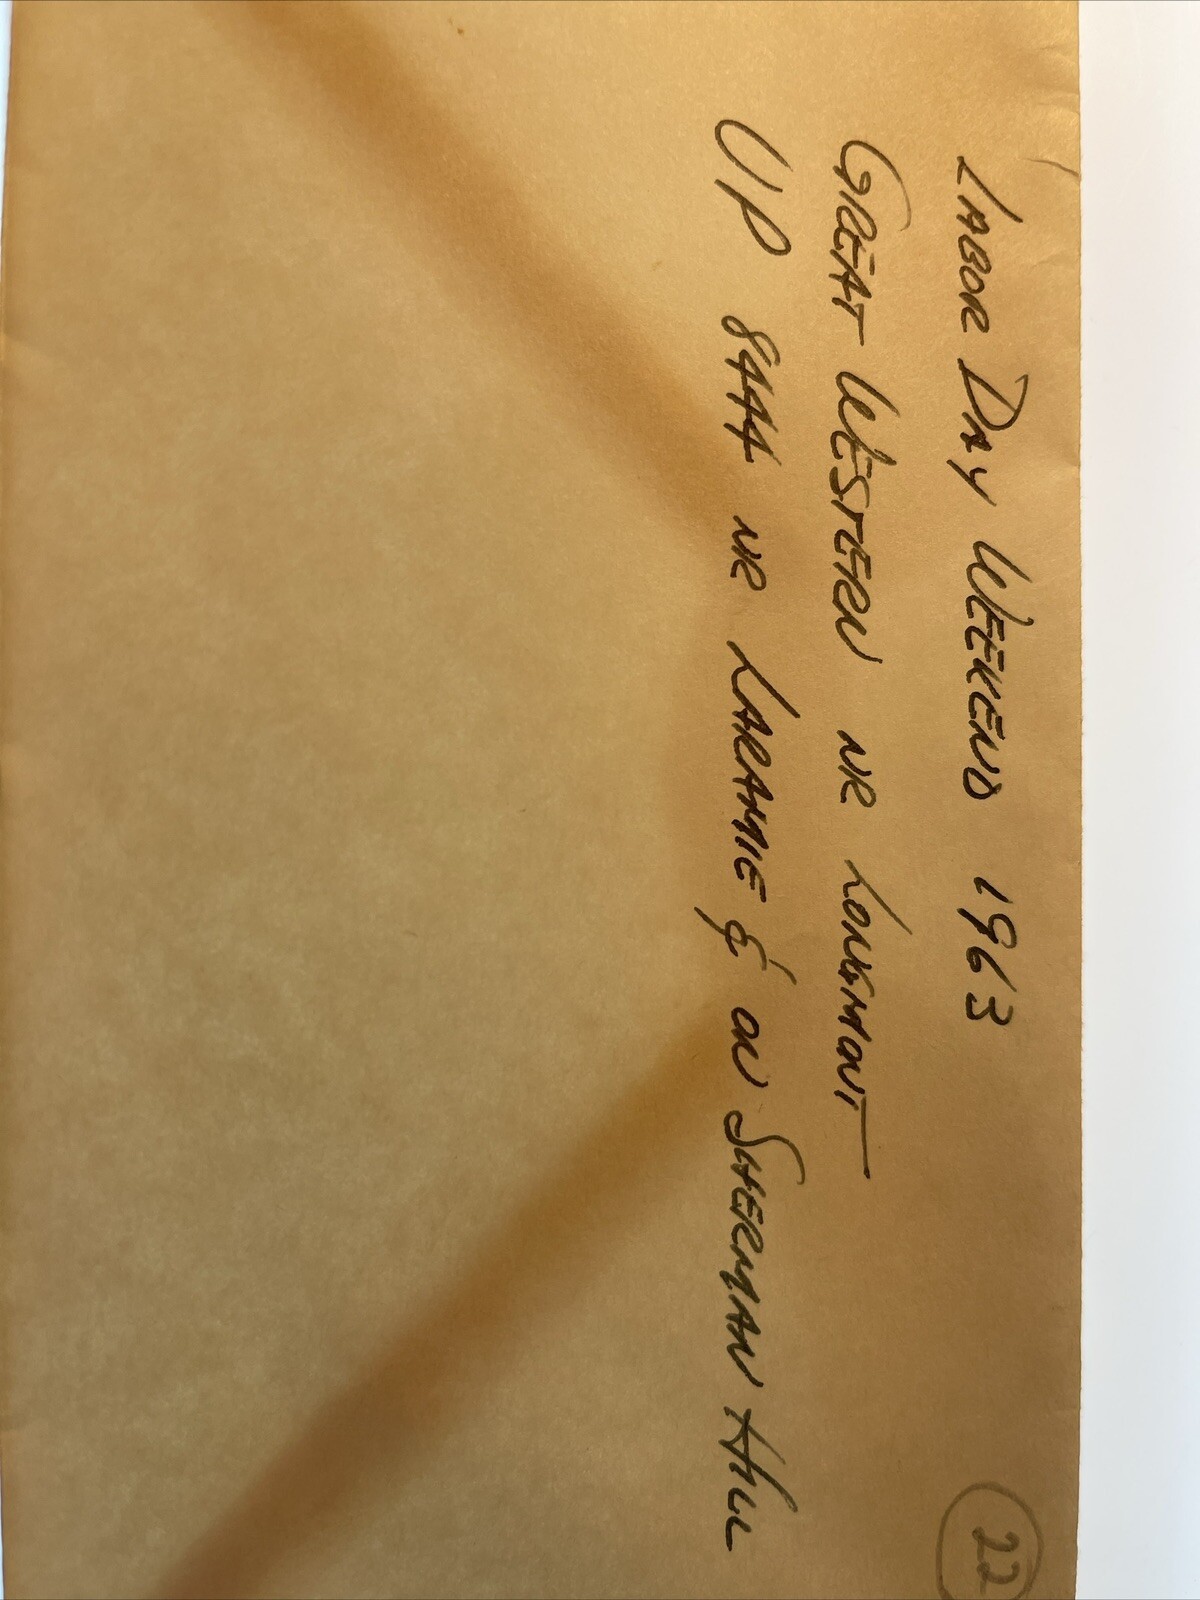 22
LABOR DAY WEEKEND 1963
GREAT WESTERN NR LONGMONT
UP 8444 NR LARAMIE & ON SHERMAN HILL